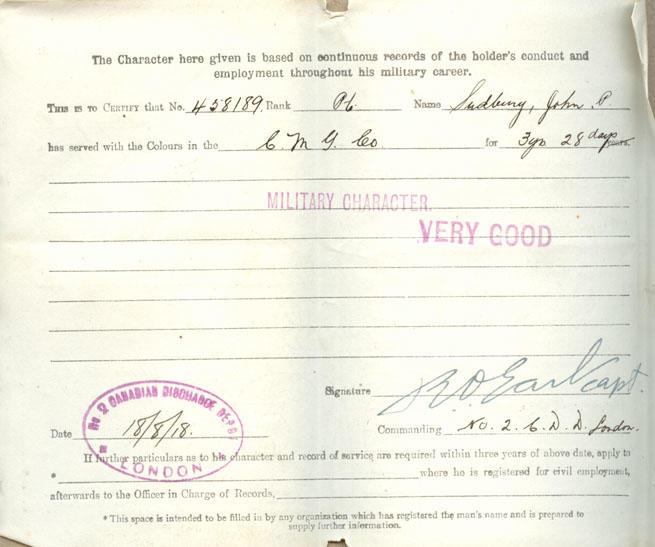 The Character here given is based on continuous records of the holder's conduct and
employment throughout his military career.
THIS IS TO CERTIFY that No. 458189. Rank Pt. Name Sudbury, John. P.
has served with the Colours in the C. M. G. Co. for 3 yrs 28 days years.
MILITARY CHARACTER.
VERY GOOD
Signature Capt.
No 2 CANADIAN DISCHARGE DEPOT
LONDON
Date 18/8/18.
Commanding No. 2. C. D. D. London.
If further particulars as to his character and record of service are required within three years of above date, apply to
* where he is registered for civil employment,
afterwards to the Officer in Charge of Records,
* This space is intended to be filled in by any organization which has registered the man's name and is prepared to
supply further information.